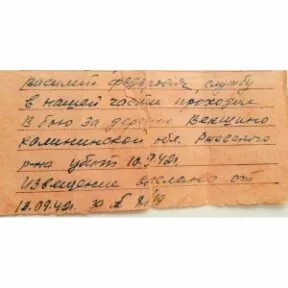 Василий Федорович службу
в нашей части проходил
В бою за деревню Векшино
Калининской обл. Ржевского
р-на убит 10.9.42г.
Извещение выслано от
12.09.42г. за №